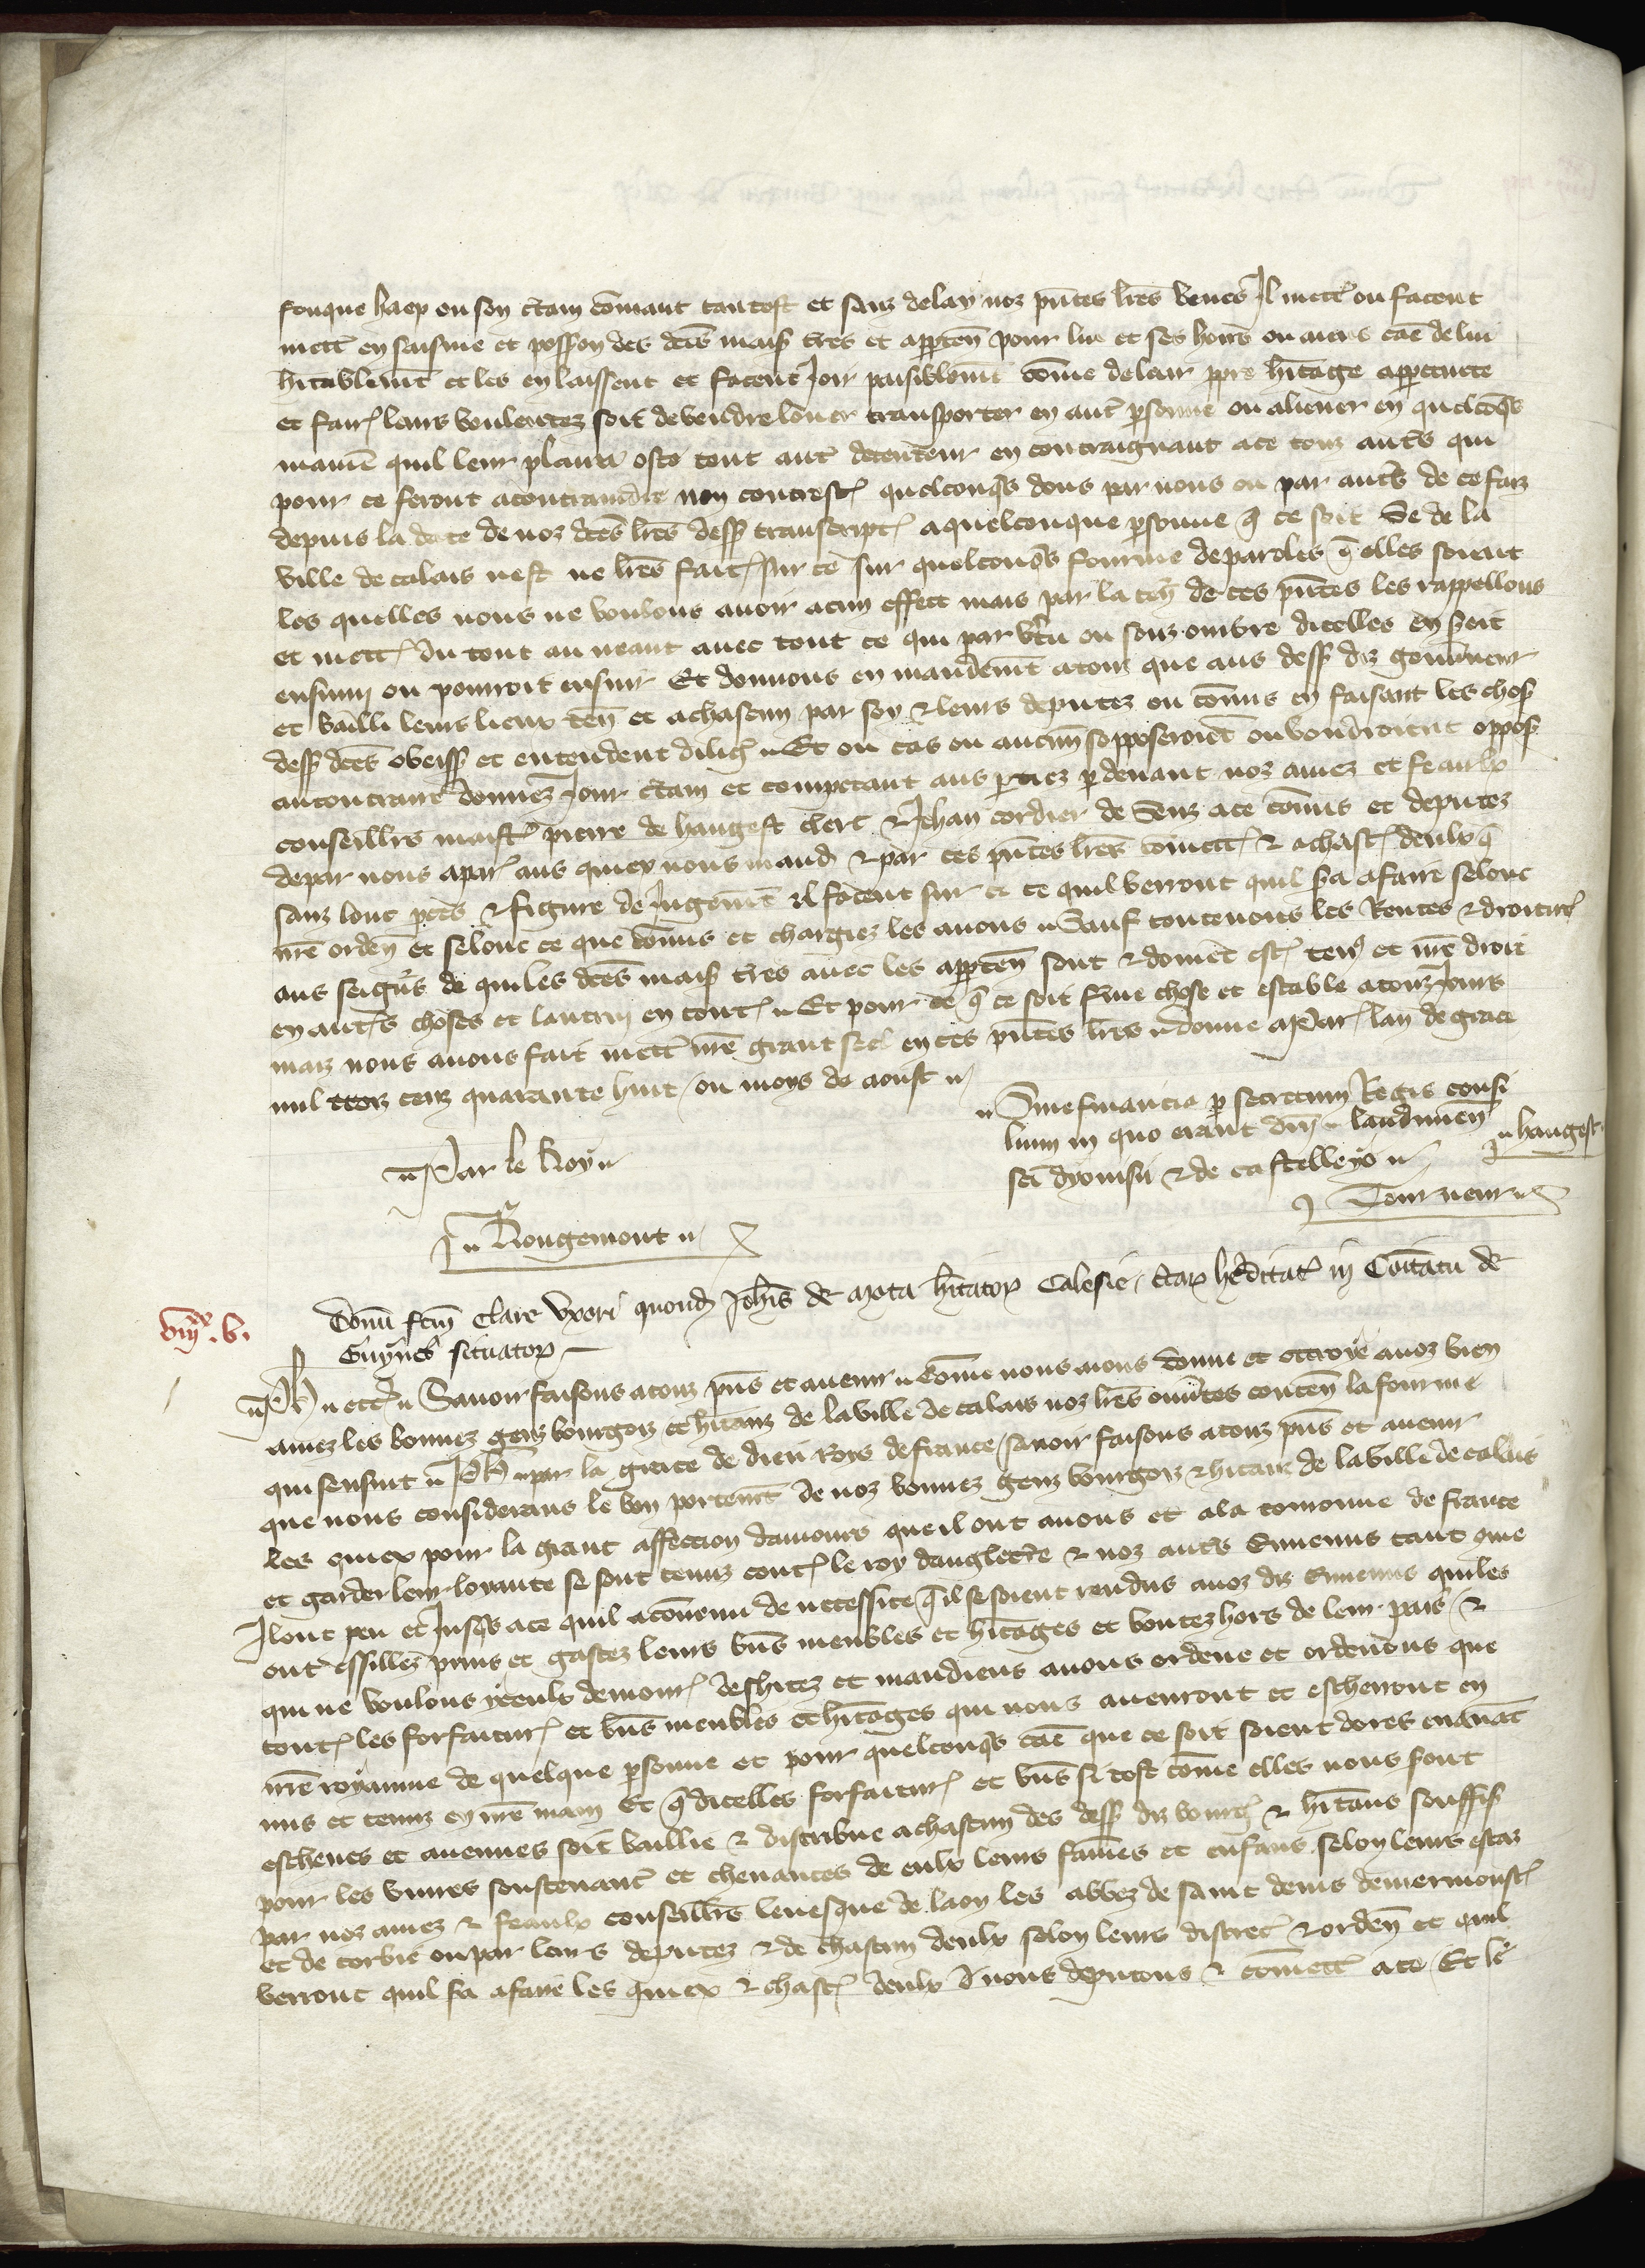 fouque haep ou son c̃tain com̃ant tantost et sanz delay noz p̃ntes lr̃es veues Il mett̃ ou facent
mett̃ en saisine et poss̃on des dc̃es mais̃ tr̃es et apparten̄ pour lui et ses hoirs ou aiens cãe de lui
h̃itablem̃t et les en laissent et facent Joir paisiblem̃t com̃e de leur p̃pre h̃itage appertente
et fair̃ leurs voulentez soit de vendre louer transporter en aut̃ p̃sonne ou aliener en quelcõqs
manie᷑ quil leur plaira oste tout aut̃ detenteur en contraignant a ce touz aut̃s qui
pour ce feront a contraindre non contrest̃ quelconqs dons par nous ou par aut̃s de ce faiz
depuis la date de noz dc̃es lr̃es dess̃ transcript̃ a quelconque p̃sonne q̃ ce soit Se de la
ville de calais nest ne lr̃es fait̃ sur ce sur quelconqs fourme de paroles q̃ elles soient
les quelles nous ne voulons auoir acun effect mais par la ten̄ de ces p̃ntes les rappellons
et mett̃ du tout au neant auec tout ce qui par v̓tu ou souz ombre dicelles en seroit
ensuiuy ou pourroit ensuir Et donnons en mandem̃t a touz que aus dess̃ diz gouũneur
et bailli leurs lieux ten̄ et a chascun par soy & leurs deputez ou com̃is en faisant les chos̃
dess̃ dc̃es obeiss̃ et entendent dilig̃ Et ou cas ou aucuns sopposeroiẽt ou voudroient oppos̃
au contraire donnez Jour c̃tain et competant aus p̃tiez p̃ deuant noz amez et feaulx
conseillrs maist̃ pierre de hangest clerc & Jehan cordier de Senz a ce com̃is et deputez
de par nous a par̃ aus quiex nous mand̃ & par ces p̃ntes lr̃es com̃ett̃ & a chasc̃ deulx q̃
sanz lonc p̃ces & figure de Jugem̃t Il facent sur ce ce quil verront quil s̃a a faire selonc
nr̃e orden̄ et selonc ce que com̃is et chargiez les auons Sauf toutenoies les Rentes & droitur̃
aus seign̓s de qui les dc̃es mais̃ tr̃es auec les apparten̄ sont & doiuẽt est̃ ten̄ et nr̃e droit
en aut̃s choses et lautruy en tout̃ Et pour ce q̃ ce soit f̃me chose et estable a touz Jours
maiz nous auons fait mett̃ nr̃e grant seel en ces p̃ntes lr̃es donne a Par̃ lan de grace
mil troiz cenz quarante huit ou moys de aoust
Sine financia p̃ secretum Regis consi
lium in quo erant dñi laudunen̄
sc̃i dyonisii & de castelleyo hangest
Par le Roy
Tourneur
Rougemont
Donũ fc̃m clare vxori quond̃ Joh̃is de mota h̃itator̃ Calesie, c̃tar̃ hẽditat̃ in Com̃itatu de
Guynes situator̃
viijxx. v.
Ph̃ etc̃ Sauoir faisons a touz p̃ns et auenir Com̃e nous aions donne et ottroye a noz bien
amez les bonnez genz bourgois et h̃itanz de la ville de calais noz lr̃es ouũtes conten̄ la fourme
qui sensuit Ph̃ par la grace de dieu roys de france sauoir faisons a touz p̃ns et auenir
que nous considerans le bon portem̃t de noz bonnez genz bourgois & h̃itanz de la ville de calais
les quiex pour la grant affection damours que il ont a nous et a la coronne de france
et garder leur loyaute se sont tenuz cont̃ le roy dangleterre & noz aut̃s Ennemis tant que
Il ont peu et Jusqs a ce quil a conuenu de necessite q̃ il se soient rendus a noz diz Ennemis qui les
ont essillez prins et gastez leurs bñs meubles et h̃itages et boutez hors de leur pais &
qui ne voulons yceulx demour̃ desh̃itez et mandiens auons ordene et ordenons que
tout̃ les forfaitur̃ et bñs meubles et h̃itages qui nous auenront et escherront en
nr̃e royaume de quelque p̃sonne et pour quelconqs cãe que ce soit soient dores enauãt
mis et tenuz en nr̃e main Et q̃ dicelles forfaitur̃ et bñs si tost com̃e elles nous s̃ont
escheues et auenues soit baillie & distribue a chascun des dess̃ diz bourg̃ & h̃itans souffis̃
pour les viures soustenant̃ et cheuances de eulx leurs fam̃es et enfans selon leurs estaz
par noz amez & feaulx conseillrs leuesque de laon les abbez de saint denis de mermoust̃
et de corbie ou par leurs deputez & de chascun deulx selon leurs discret̃ & orden̄ et quil
verront quil s̃a a faire les quiex & chasc̃ deulx nous deputons & com̃ett̃ a ce Et se